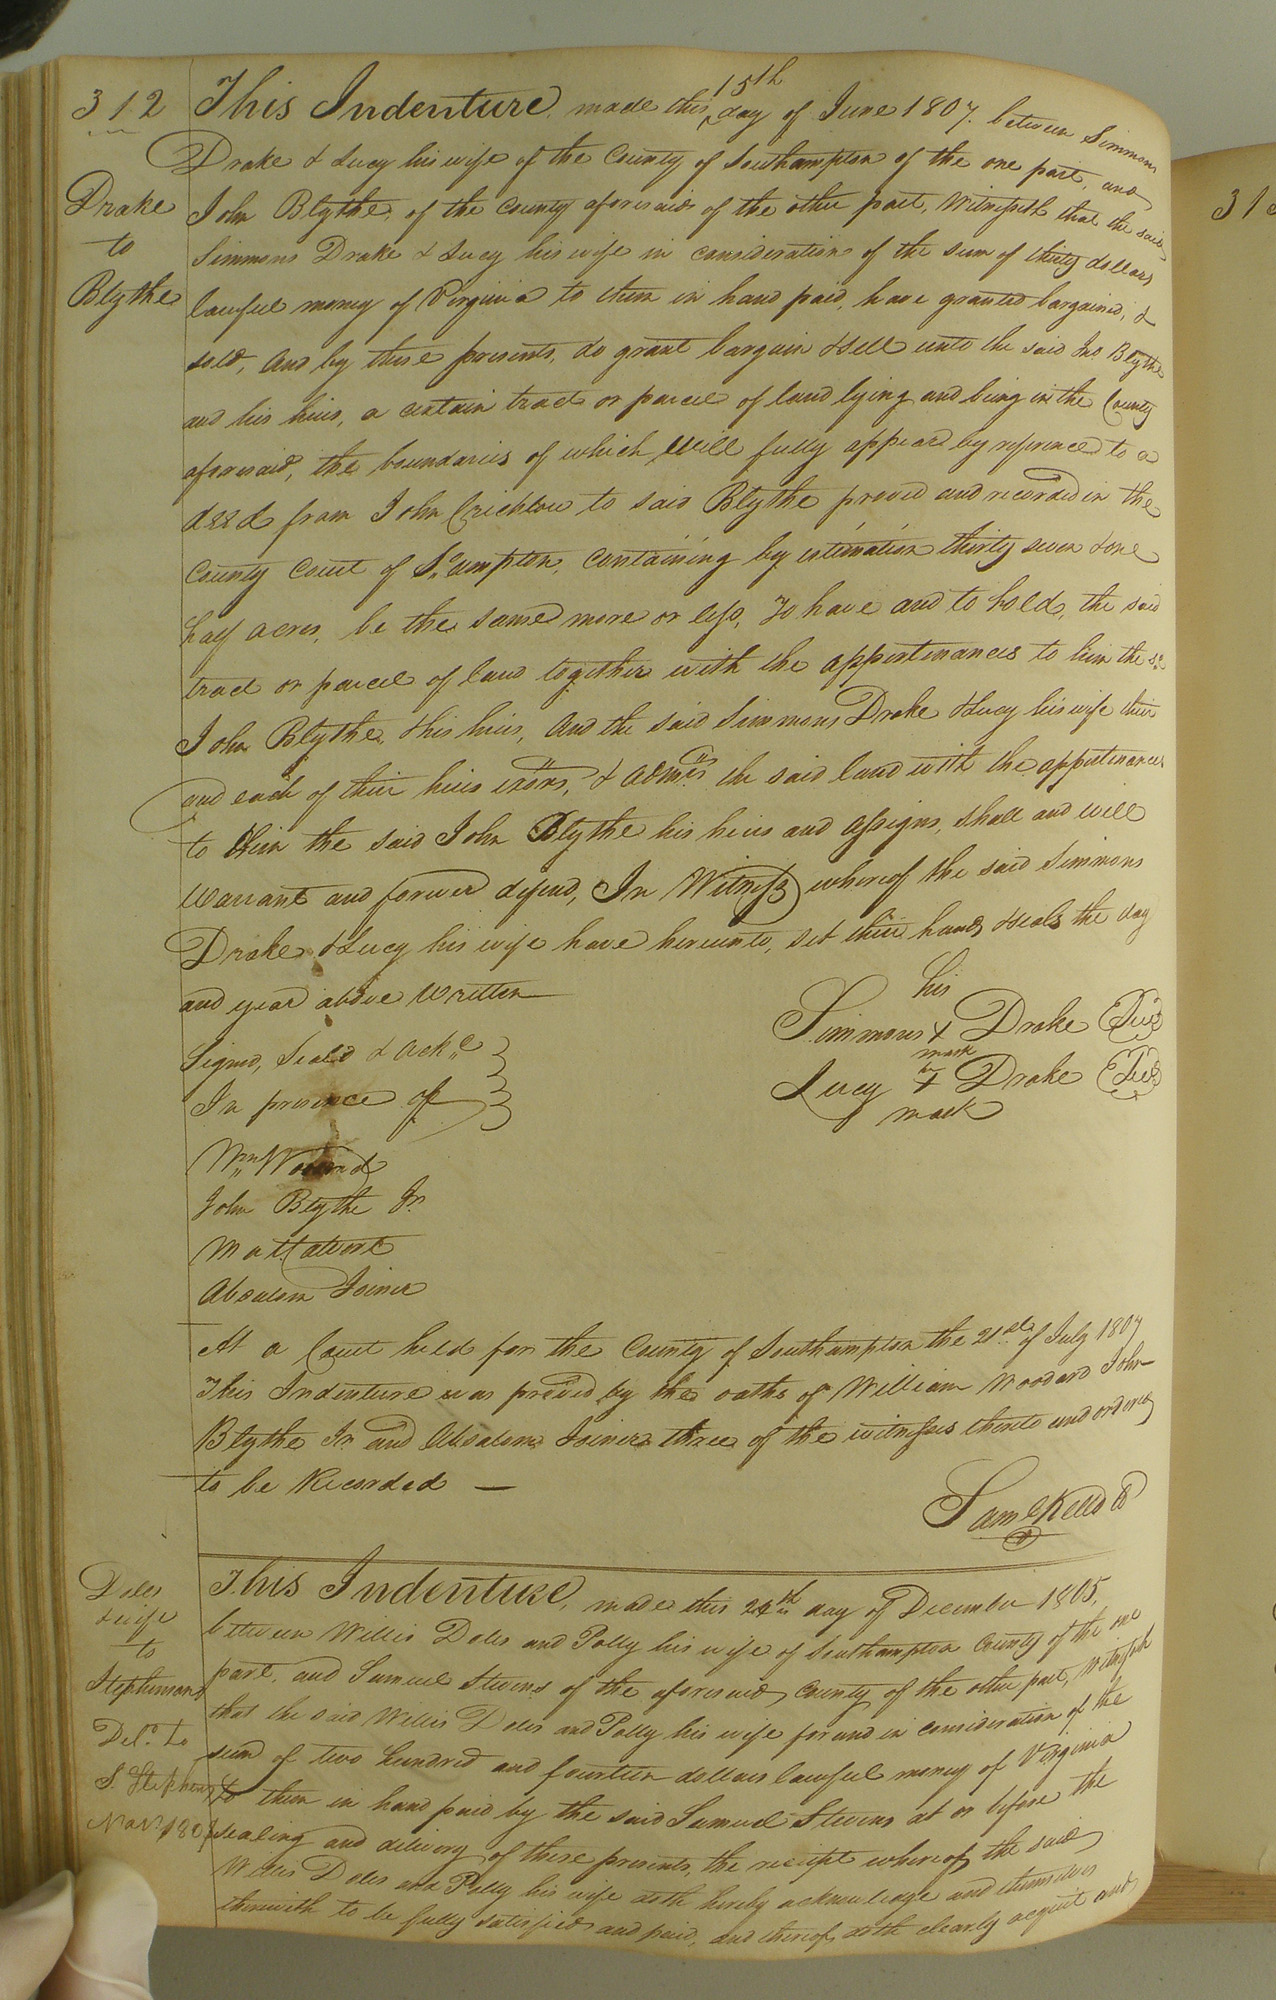 312
Drake
to
Blythe
This Indenture, made this 15th day of June 1807. between Simmons
Drake & Lucy his wife of the County of Southampton of the one part, and
John Blythe, of the County aforesaid of the other part, Witnesseth that the said
Simmons Drake & Lucy his wife in consideration of the sum of thirty dollars
lawfull money of Virginia to them in hand paid, have granted bargained, &
sold, and by these presents, do grant bargain & sell unto the said Jno Blythe
and his heirs, a certain tract or parcel of land lying and being in the County
aforesaid, the boundaries of which will fully appear by refrence to a
deed from John Crichlow to said Blythe proved and recorded in the
County Court of S.ampton, containing by estimation thirty seven & one
half acres, be the same more or less, To have and to hold, the said
tract or parcel of land together with the appertenances to him the sd
John Blythe, & his heirs, And the said Simmons Drake & Lucy his wife their
and each of their heirs exors, & admrs the said land with the appertenances
to him the said John Blythe his heirs and assigns, shall and will
warrant and forever defend, In Witness whereof the said Simmons
Drake & Lucy his wife have hereunto, set their hands & seals the day
and year above Written
his
Simmons + Drake
mark
Lucy + Drake
mark
Signed, Seal'd & Ackd
In presence of
Wm Woodard
John Blythe Jr
Absalom Joiner
At a Court held for the County of Southampton the 21st of July 1807
This Indenture was proved by the oaths of William Woodard John
Blythe Jr and Absalom Joiner three of the witnesses thereto and ordered
to be Recorded —
Saml Kello
Doles
& wife
to
Stephenson
Deld to
S. Stephens
This Indenture, made this 24th day of December 1805,
between Willis Doles and Polly his wife of Southampton County of the one
part, and Samuel Stevens of the aforesaid County of the other part, Witnesseth
that the said Willis Doles and Polly his wife for and in consideration of the
sum of two hundred and fourteen dollars lawfull money of Virginia
to them in hand paid by the said Samuel Stevens at or before the
sealing and delivery of these presents, the receipt whereof, the said
Willis Doles and Polly his wife doth hereby acknowledge and themselves
therewith to be fully satisfied and paid, and thereof doth clearly acquit and